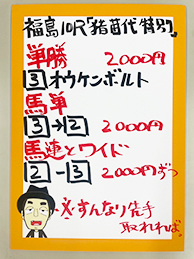 福島10R「猪苗代特別」。
単勝 2000円
3 オウケンボルト
馬単
3→2 2000円
馬連とワイド
2-3 2000円ずつ
※すんなり先手
取れれば。